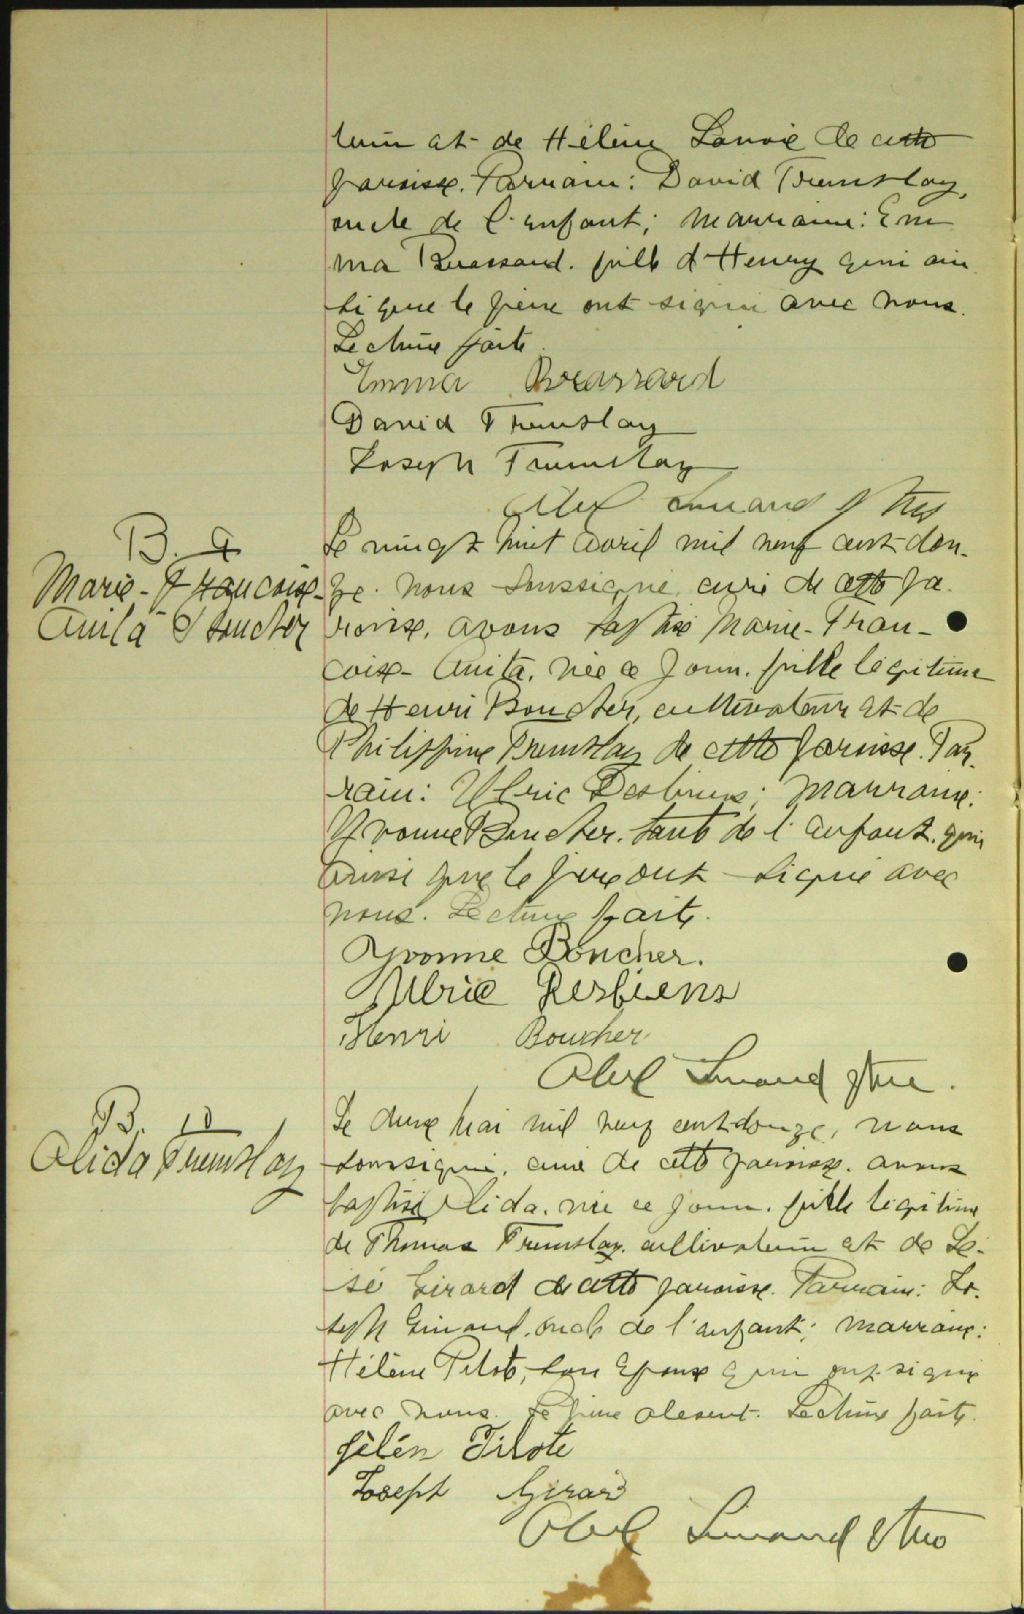 et de Hélène Lavoie de cette
paroisse. Parrain: David Tremblay,
oncle de l'enfant; marraine: Em
ma Brassard. fille d'Henry qui ain
si que le père ont signé avec nous.
Lecture faite.
Emma Brassard
David Tremblay
Joseph Tremblay
Abel Simard Ptre
B. 9
Marie-Françoise-
Anita Boucher
Le vingt huit avril mil neuf cent dou-
ze. nous soussigné, curé de cette pa
roisse, avons baptisé Marie-Fran-
coise-Anita, née ce jour. fille légitime
de Henri Boucher, cultivateur et de
Philippine Tremblay de cette paroisse. Par
rain: Ulric Desbiens; marraine:
Yvonne Boucher. tante de l'enfant. qui
ainsi que le père ont signé avec
nous. Lecture faite.
Yvonne Boucher.
Ulric Desbiens
Henri Boucher
Abel Simard ptre.
B. 10
Alida Tremblay
Le deux mai mil neuf cent douze, nous
soussigné, curé de cette paroisse. avons
baptisé Alida. née ce jour. fille légitime
de Thomas Tremblay. cultivateur et de
Girard de cette paroisse. Parrain: Jo.
seph Girard, oncle de l'enfant; marraine:
Hélène Pilote, son épouse qui ont signé
avec nous. Le père absent. Lecture faite.
Hélèn Pilote
Joseph Girard
Abel Simard Ptre